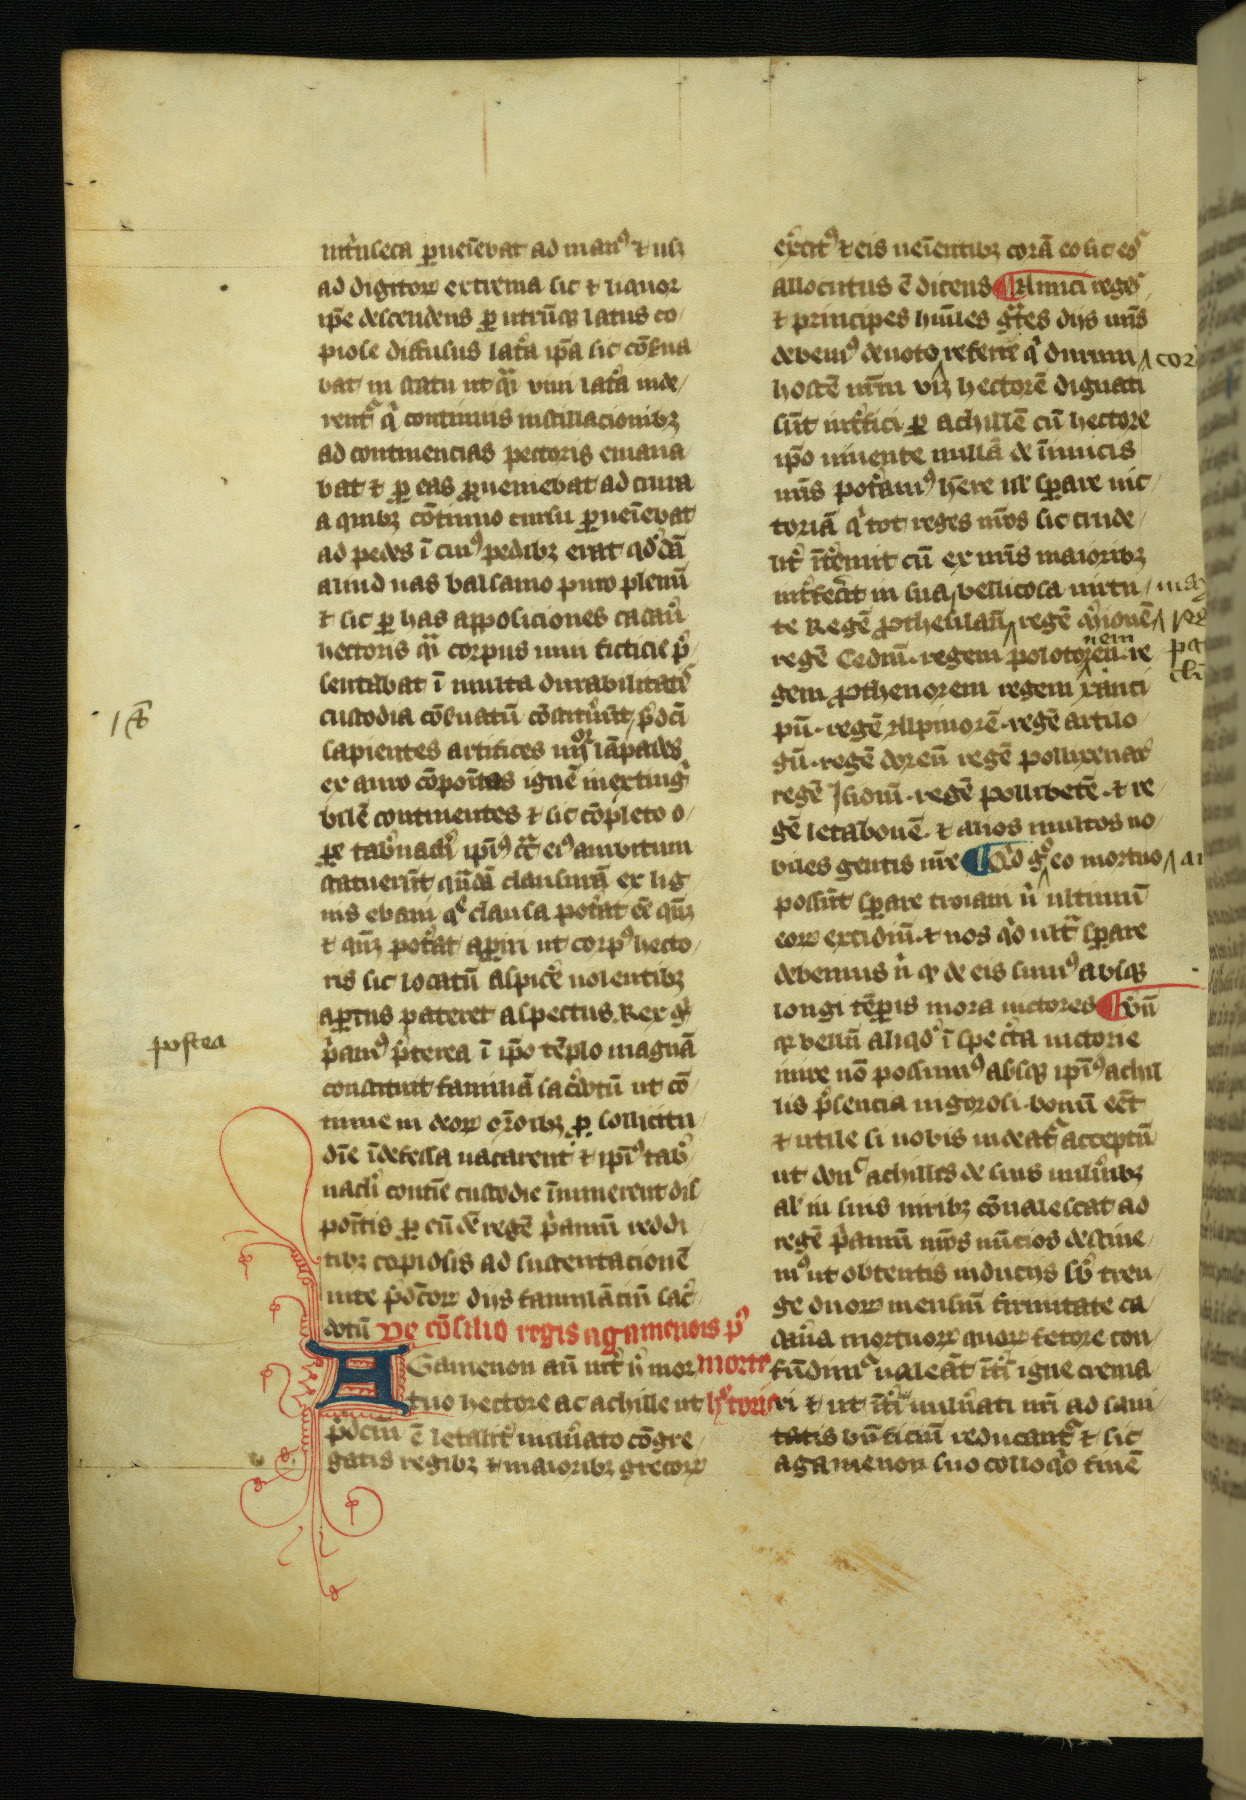 intͥnseca ꝑueīebat ad manꝰ ⁊ usꝫ
ad digitoꝝ extrema sic ⁊ liquor
ip̄e descendens ꝑ utrūqꝫ latus co
piose diffusus lat̓a ip̄a sic cōẜua
bat in statu ut qͣi uiui lat̓a uide
rentᷣ qͥ continuis instillacionibꝫ
ad continencias pectoris emana
bat ⁊ ꝑ eas ꝓueniebat ad crura
a quibꝫ cōtinuo cursu ꝑueīebat
ad pedes ī cuiꝰ pedibꝫ erat qd̓dā
aliud uas balsamo puro plenū
⁊ sic ꝑ has apposiciones cadau̓
hectoris qͣi corpus uiui ficticie p̄
sentabat ī multa durabilitatꝭ
custodia cōẜuatū cōstituūt p̄dc̄i
sapientes artifices iiijᵒʳ lāpades
ex auro cōpon̄tas ignē inextingͥ
bilē continentes ⁊ sic cōpleto o
ꝑe tab̓nacl̓i ip̄iꝰ cͣ eiꝰ ambitum
statuerūt qn̄dā clausurā ex lig
nis ebani qͤ clausa pot̓at eē qn̄ꝫ
⁊ qn̄ꝫ pot̓at aꝑiri ut corpꝰ hecto
ris sic locatū aspice̓ uolentibꝫ
aꝑtus pateret aspectus. Rex gͦ
pͥamꝰ p̄terea ī ip̄o tēplo magnā
constituit familiā sac̓dotū ut cō
tinue in deoꝝ or̄oibꝫ ꝑ sollicitu
dīe īdefessa uacarent ⁊ ip̄iꝰ tab̓
nacl̓i contīe custodie īminerent dis
pon̄tis ꝑ eūdē regē pͥamū reddi
tibꝫ copiosis ad sustentacionē
uite p̄dc̄oꝝ dijs famulāciū sac̓
dotū De cōsilio regis agamenōis pꝰ
Gamenon aū uit̓ ẜ mor mortē
tuo hectore ac achille ut hc̓toris
p̄dcm̄ ē letalit̓ uulu̓ato cōgre
gatis regibꝫ ⁊ maioribꝫ grecoꝝ
postea
ex̓citꝰ ⁊ eis ueīentibꝫ corā eo sic eoꝭ
allocutus ē dicens Amici regeꝭ
⁊ principes hūiles gͣtes dijs nr̄is
debemꝰ deuoto referre qͥ durum cor
hostē nr̄m vꝫ hectorē dignati
sūt int̓fici ꝑ achillē cū hectore
ip̄o uiuente nullā de īimicis
nr̄is pot̓amꝰ hēre ul̓ sꝑare uic
toriā qͥ tot reges nr̄os sic crude
lit̓ īt̓emit cū ex nr̄is maioribꝫ
int̓fecit in sua bellicosa uirtu
te Regē ꝓthesilaū regē mͥionē
regē Cedriū regem polotoreū re
nem
gem ꝓthenorem regem xanti
pū regē Alpinorē regē artilo
gū regē doreū regē polixenaꝫ
regē Isidiū regē polibetē ⁊ re
gē letabonē ⁊ alios multos no
biles gentis nr̄e Qͥd gͦ eo mortuo
possūt sꝑare troiani nͥ ultimū
eoꝝ excidiū ⁊ nos qͥd ultͣ sꝑare
debemus nͥ qꝫ de eis simꝰ absqꝫ
longi tēꝑis mora uictores Veꝝ
qꝫ bellū aliqd̓ ī spe cͣta uictorie
inire nō possumꝰ absqꝫ ip̄iꝰ achil
lis p̄sencia uigorosi bonū eēt
⁊ utile si uobis uideatᷣ acceptū
ut donͨ achilles de suis uuln̓ibꝫ
al̓ in suis uiribꝫ cōualescat ad
regē pͥamū nr̄os nūcios destine
mꝰ ut obtentis inducijs sb̓ treu
ge duoꝝ mensiū firmitate ca
dau̓a mortuoꝝ quoꝝ fetore con
fūdimᷣ ualeāt īt̓i igne crema
ri ⁊ ut īt̓i uuln̓ati nr̄i ad sani
tatis bn̄ficiū reducantᷣ ⁊ sic
agamenon suo colloqͦ finē